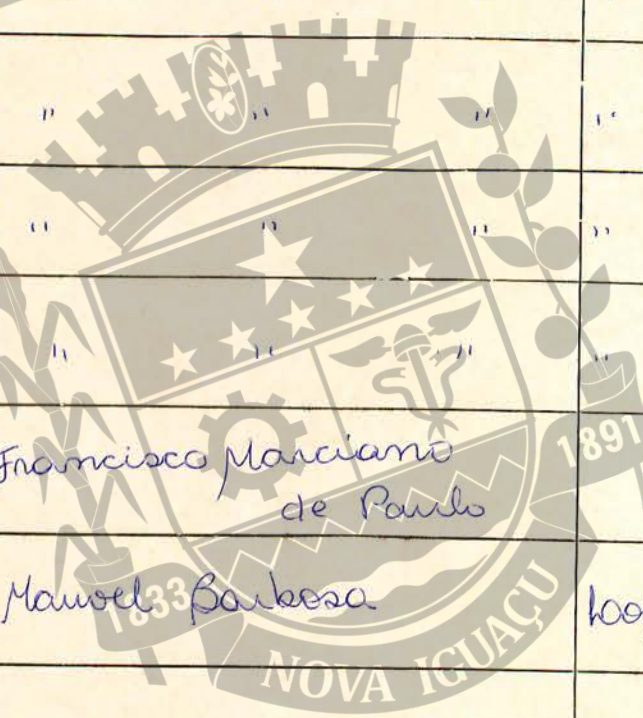 " " " "
" " " "
" " " "
Francisco Marciano
de Paulo
1891
Manoel Barbosa
1833
NOVA IGUAÇU